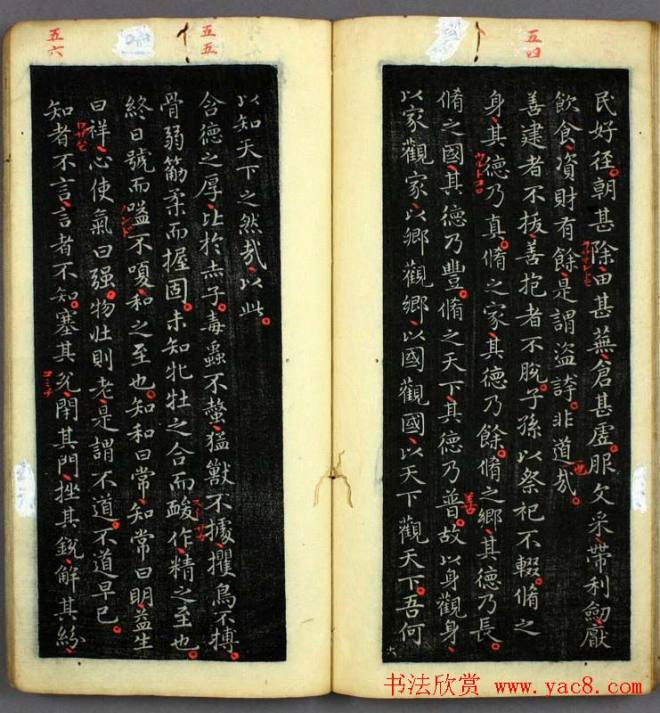 五四
民好径朝甚除田甚蕪倉甚虛服文采帶利劒厭
飲食資財有餘是謂盜誇非道哉
也
善建者不拔善抱者不脫子孫以祭祀不輟脩之
身其德乃真脩之家其德乃餘脩之鄉其德乃長
脩之國其德乃豐脩之天下其德乃普故以身觀身
以家觀家以鄉觀鄉以國觀國以天下觀天下吾何
五五
以知天下之然哉以此
含德之厚比於赤子毒蟲不螫猛獸不據攫鳥不搏
骨弱筋柔而握固未知牝牡之合而酸作精之至也
終日號而嗌不嗄和之至也知和曰常知常曰明益生
曰祥心使氣曰强物壯則老是謂不道不道早已
五六
知者不言言者不知塞其兌閇其門挫其銳解其紛
书法欣赏 www.yac8.com